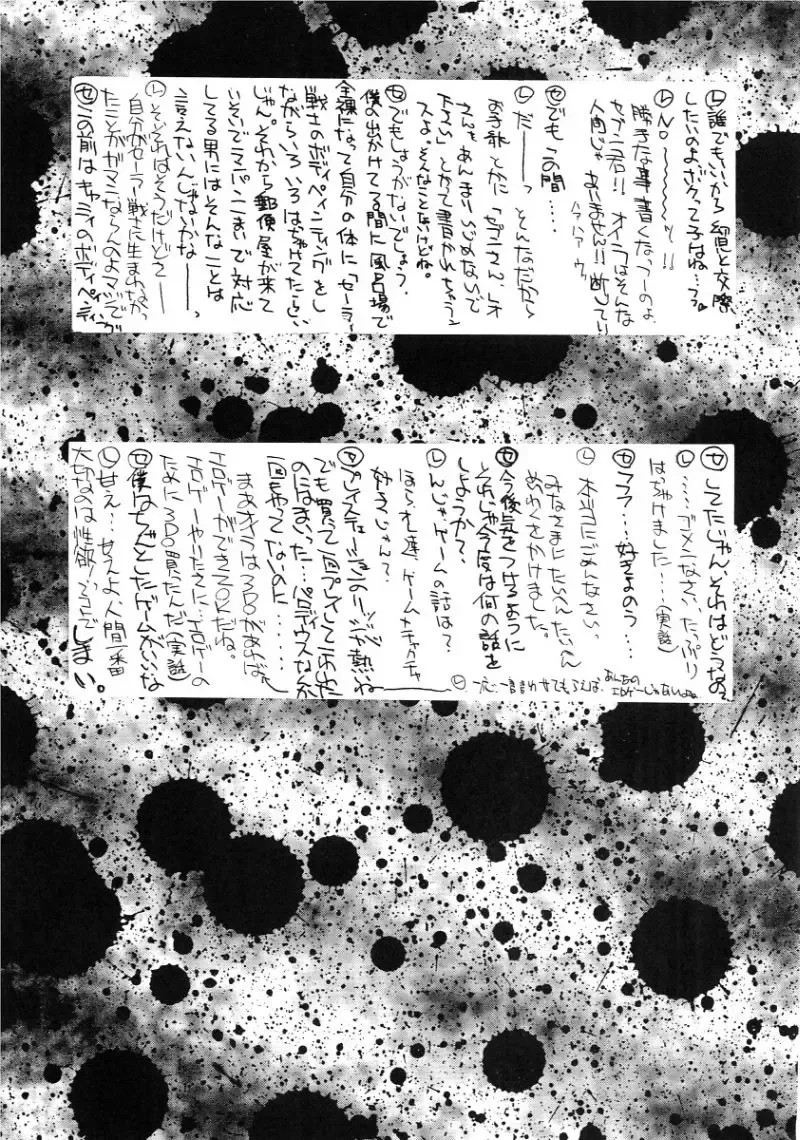 Ⓛ誰でもいいから幼児と交際
したいのよボクって子はね…っ。
Ⓛ NO～～～～ッ!!
勝手な事書くなっつーのよ
セブン君!! オイラはそんな
人間じゃありません!! 断じて!!
ハァハァ ウッ
セでもこの間…
Ⓛだ――っ そんなだから
お手紙とかに「セブンさん、レオ
さんをあんまいじめないで
下さい」とかって書かれちゃうン
スよ。そんなことないけどね。
セでもしょうがないでしょう。
僕の出かけてる間に風呂場で
全裸になって自分の体に「セーラー
戦士のボディペインティングをし
ながらいろいろはちゃけてたらしい
じゃん。それから郵便屋が来て
いそいでママパンこまいで対応
してる男にはそんなことは
言えないんじゃないかな――っ
Ⓛそ、それはそうだけどさ――
自分がセーラー戦士に生まれなかっ
たことがガマンならんのよマジでッ
セこの前はキャミィのボディペインティング
セしてたじゃん それはどうなの?
Ⓛ……ゴメンなさい たっぷり
はちゃけました…(実話)
セフフ…好きよのう…
Ⓛ本当にごめんなさい。
みなさまにたいへんたいへん
めいわくをかけました。
セ今後気をつけるように
それじゃ今度は何の話を
しようか?
Ⓛんじゃゲームの話は?
ほら、オレ達ゲームメチャクチャ
好きじゃん?
セプレイステーションのソージャが熱いね
でも買って一回プレイして一ヶ月た
のはまいった…パロディウスなんか
一回もやってないのに……
まあオイラは3DOがあれば
エロゲーができてOKだね。
エロゲーやりたさに…エロゲーの
ために3DO買ったんだ(実話)
セ僕はちゃんとしたゲームがいいな
Ⓛ甘え…甘えよ人間一番
大切なのは性欲!ってことで
しまい。
Ⓛ一応一言言わせてもらえば、
あんたの
エロゲーじゃないよね